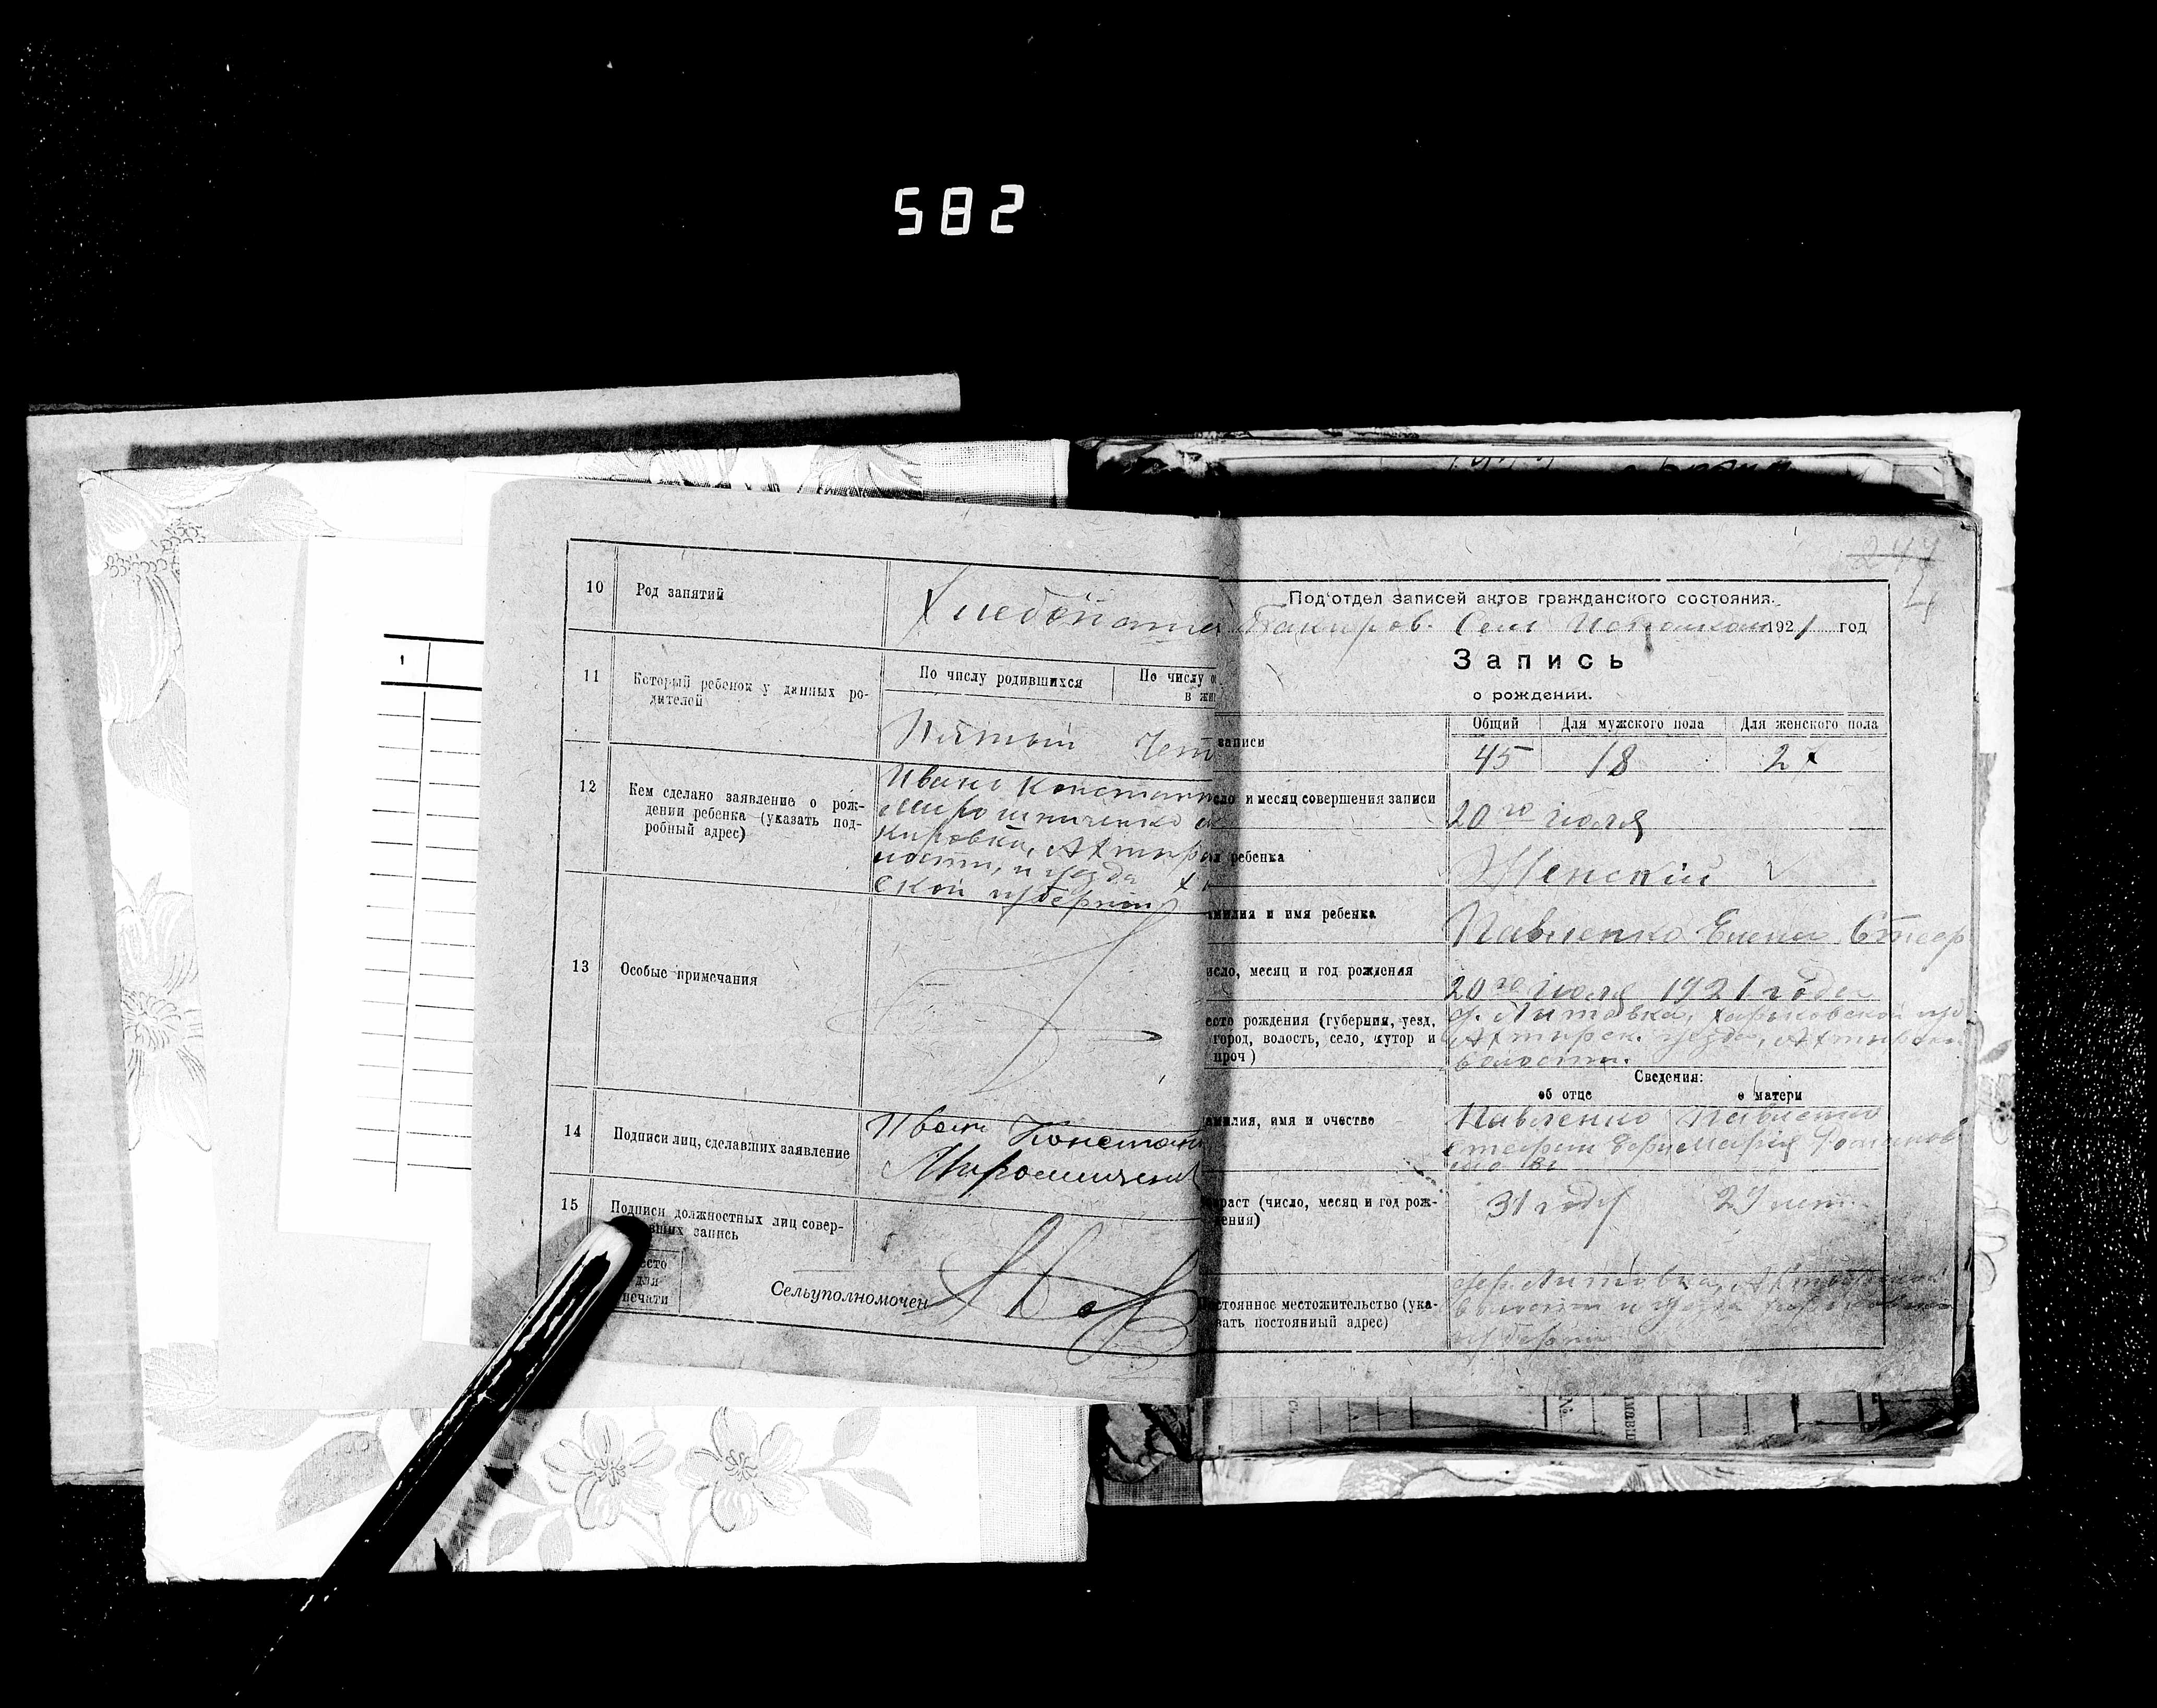 582
10 Род занятий
11 Который ребенок у данных ро-
дителей
По числу родившихся По числу
в жи
Пятый Чет
12 Кем сделано заявление о рож-
дении ребенка (указать под-
робный адрес)
Иван Констант
Мирошниченко
кировка, Ахтыр
лости, и уезда
ской губернии
13 Особые примечания
14 Подписи лиц, сделавших заявление
Иван Констан
Мирошничен
15 Подписи должностных лиц совер-
запись
для
печати
Сельуполномочен
Под'отдел записей актов гражданского состояния.
1921 год
Запись
о рождении.
записи
Общий Для мужского пола Для женского пола
45 18 27
и месяц совершения записи
20го июля
ребенка
Женский
и имя ребенка
Павленко Елена Стеф
месяц и год рождения
20го июля 1921 года
рождения (губерния, уезд,
город, волость, село, хутор и
проч)
д. Литовка, Харьковской губ
Ахтырск. уезда, Ахтырск
волости.
Сведения:
об отце о матери
имя и очество
Павленко Павленко
Стефан Мария
(число, месяц и год рож-
31 год 27 лет
местожительство (ука-
зать постоянный адрес)
дер. Литовка, Ахтырской
волости и уезда Харьковской
губернии